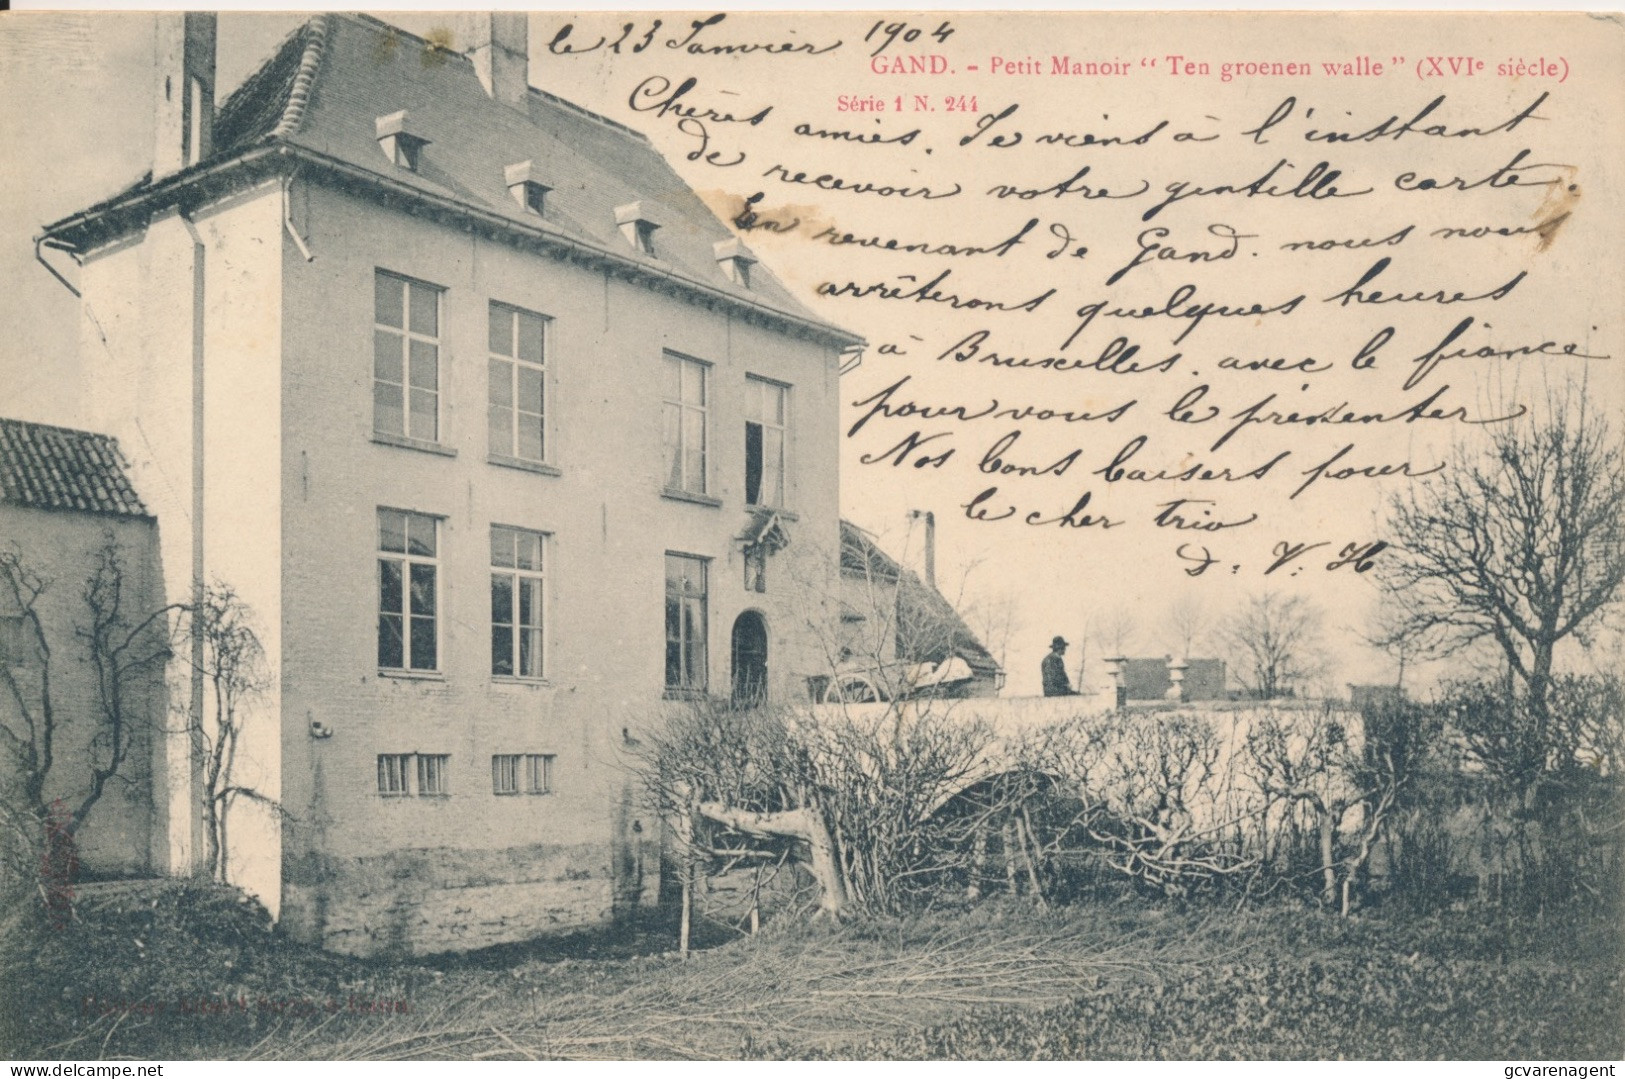 le 23 Janvier 1904
GAND. - Petit Manoir “ Ten groenen walle ” (XVIe siècle)
Série 1 N. 244
Chères amies. Je viens à l'instant
de recevoir votre gentille carte.
En revenant de Gand. nous nous
arrêterons quelques heures
à Bruxelles. avec le fiancé
pour vous le présenter
Nos bons baisers pour
le cher trio
D. V. H.
delcampe.net
gcvarenagent